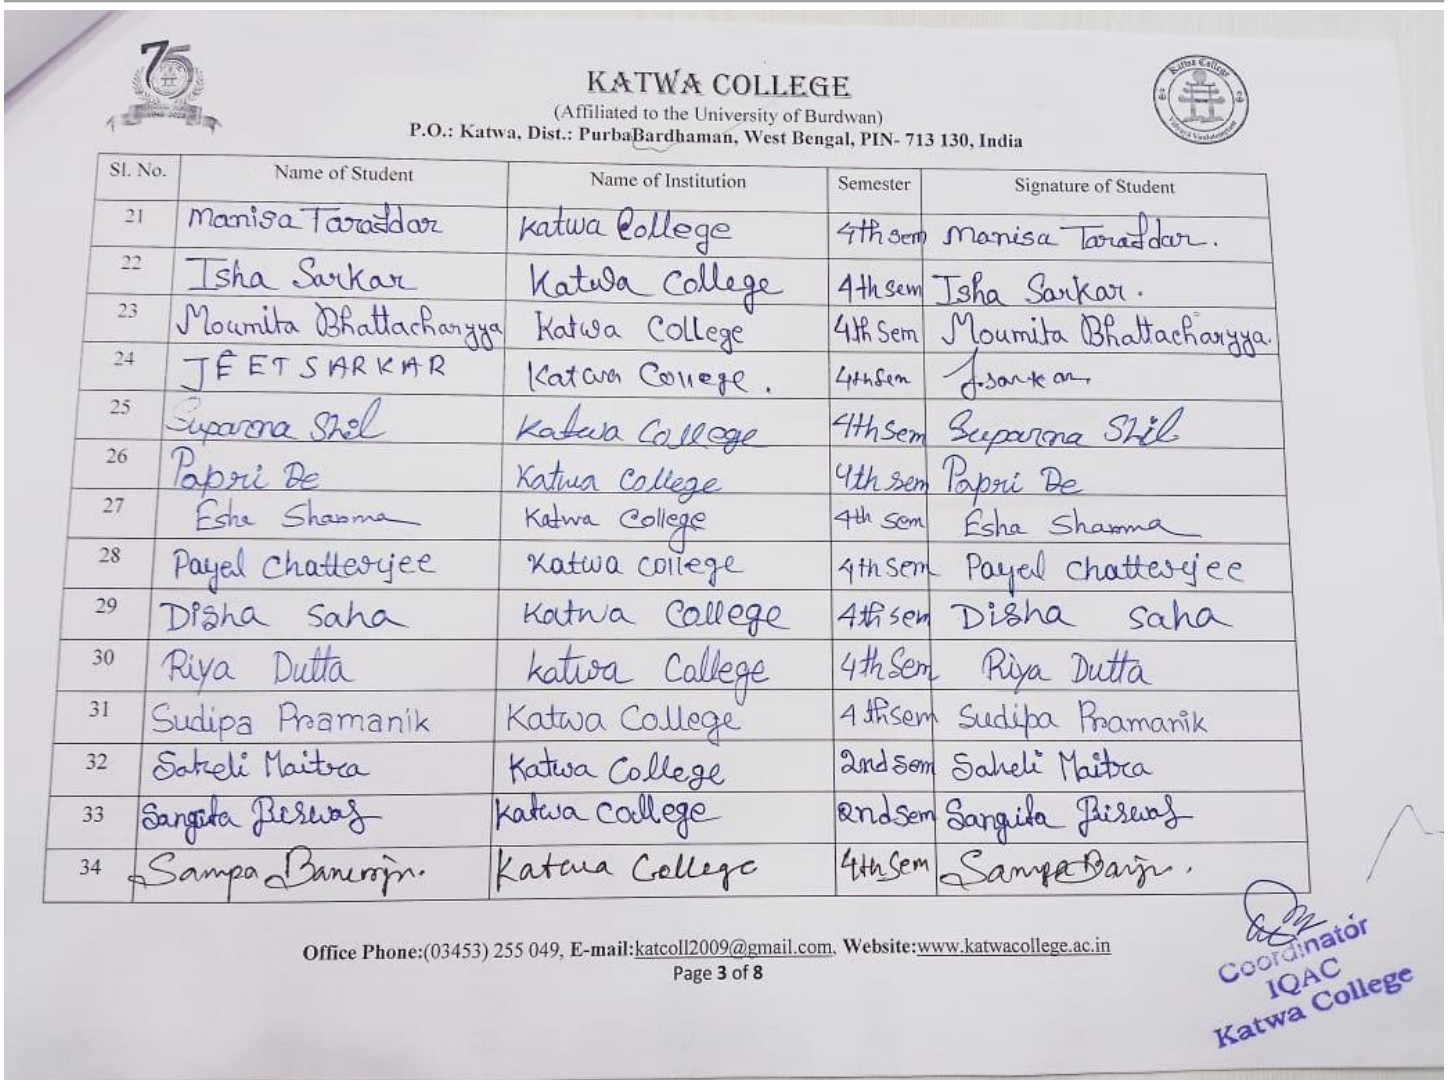 75
KATWA COLLEGE
(Affiliated to the University of Burdwan)
P.O.: Katwa, Dist.: PurbaBardhaman, West Bengal, PIN- 713 130, India
Katwa College
Sl. No. Name of Student Name of Institution Semester Signature of Student
21 Manisa Tarafdar Katwa College 4th sem Manisa Tarafdar.
22 Isha Sarkar Katwa College 4th sem Isha Sarkar.
23 Moumita Bhattacharyya Katwa College 4th Sem Moumita Bhattacharyya.
24 JEET SARKAR Katwa College. 4th Sem J.sarkar.
25 Suparna Shil Katwa College 4th sem Suparna Shil
26 Papri De Katwa College 4th sem Papri De
27 Esha Sharma Katwa College 4th sem Esha Sharma
28 Payel Chatterjee Katwa college 4th sem Payel Chatterjee
29 Disha Saha Katwa College 4th sem Disha Saha
30 Riya Dutta Katwa College 4th Sem Riya Dutta
31 Sudipa Pramanik Katwa College 4th sem Sudipa Pramanik
32 Saheli Maitra Katwa College 2nd sem Saheli Maitra
33 Sangita Biswas Katwa College 2nd Sem Sangita Biswas
34 Sampa Banerjee. Katwa College 4th Sem Sampa
Office Phone:(03453) 255 049, E-mail:katcoll2009@gmail.com, Website:www.katwacollege.ac.in
Page 3 of 8
Coordinator
IQAC
Katwa College